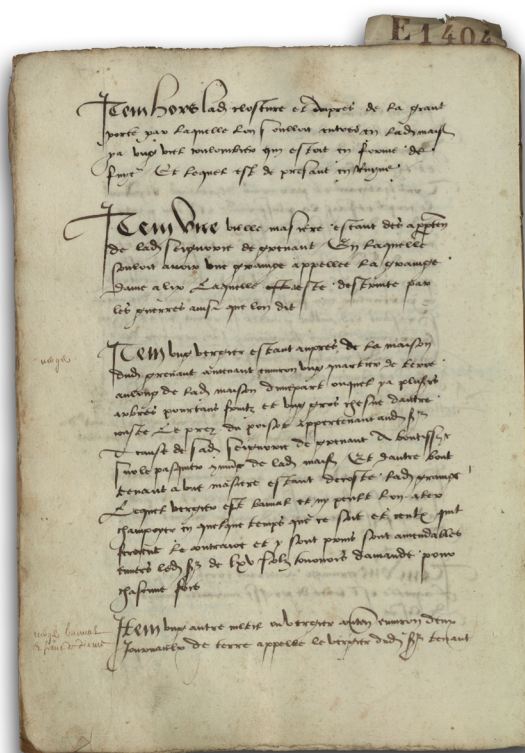 E 1404
Item hors lad closture et aupres de la grant
porte par laquelle lon souloit entrer en lad maison
ya ung viel coulombier qui estoit en forme de
fuye Et lequel est de present en ruyne
Item Une vielle masiere estant des appten
de lad seigneurie de grenant En laquelle
souloit avoir une grainge appellee la grainge
dame alix Laquelle este destruite par
les guerres ainsi que lon dit
Item ung vergier estant aupres de la maison
dud grenant contenant environ ung quartier de terre
au long de lad maison d'unepart ouquel ya plusrs
arbres pourtans fruitz et ung gros chesne dautre
couste Le prez du appertenant aud sr
A cause de sad seigneurie de grenant
de lad maison Et dautre bout
tenant a une masiere estant decoste lad grainge
Lequel vergier est banal et ny peult lon aler
champoyer en quelque temps que ce soit et ceulx qui
feroient le contraire et y sont prins sont amendables
envers led sr de lxv solz tournois damande pour
chascune fois
vergier
Item ung autre meix ou vergier conten environ deux
journaulx de terre appelle le vergier dud sr tenant
vergier banal